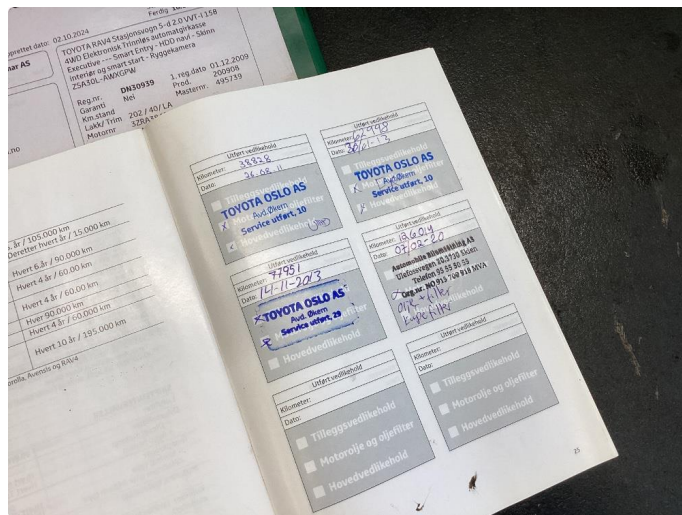 Ferdig
prettet dato: 02.10.2024
TOYOTA RAV4 Stasjonsvogn 5-d 2.0 VVT-I 158
4WD Elektronisk Trinnløs automatgirkasse
Executive --- Smart Entry - HDD navi - Skinn
Interiør og smart start - Ryggekamera
ZSA30L-AWXGPW
AS
Reg.nr. DN30939 1.reg.dato 01.12.2009
Garanti Nei Prod. 200908
Km.stand Masternr. 495739
Lakk/ Trim 202 / 40/ LA
Motornr
.no
år / 105.000 km
Deretter hvert år / 15.000 km
Hvert 6.år / 90.000 km
Hvert 4 år / 60.00
Hvert 4 år / 60.00
Hver 90.000 km
Hvert 4 år / 60.000 km
Hvert 10 år / 195.000 km
orolla, Avensis og RAV4
Utført vedlikehold
Kilometer: 38828
Dato: 26.08.11
Tilleggsvedlikehold
TOYOTA OSLO AS
Avd. Økern
Service utført, 10
Hovedvedlikehold
Utført vedlikehold
Kilometer: 62998
Dato: 30/01-13
Tilleggsvedlikehold
TOYOTA OSLO AS
Avd. Økern
Service utført, 10
Hovedvedlikehold
Utført vedlikehold
77951
14-11-2013
TOYOTA OSLO AS
Avd. Økern
Service utført, 29
Hovedvedlikehold
Utført vedlikehold
Kilometer:
Dato: 07/02-20
Ulefossvegen 50,3730 Skien
Telefon 95 55 50 55
Org.nr. NO 915 709 918 MVA
olje + filter
kupefilter
Utført vedlikehold
Kilometer:
Dato:
Tilleggsvedlikehold
Motorolje og oljefilter
Hovedvedlikehold
Utført vedlikehold
Kilometer:
Dato:
Tilleggsvedlikehold
Motorolje og oljefilter
Hovedvedlikehold
25